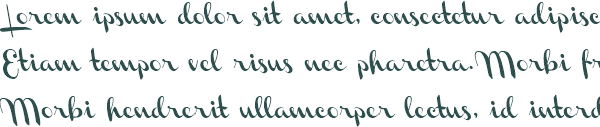 Lorem ipsum dolor sit amet, consectetur adipisc
Etiam tempor vel risus nec pharetra. Morbi fr
Morbi hendrerit ullamcorper lectus, id interd